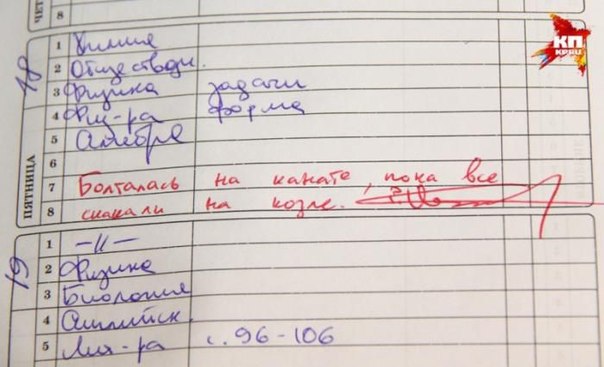 ЧЕТ
8
КП
KP.RU
18
ПЯТНИЦА
1 Химия
2 Обществозн.
3 Физика задачи
4 Физ-ра форма
5 Алгебра
6
7 Болталась на канате, пока все
8 скакали на козле.
19
1 —//—
2 Физика
3 Биология
4 Английск.
5 Лит-ра с. 96-106